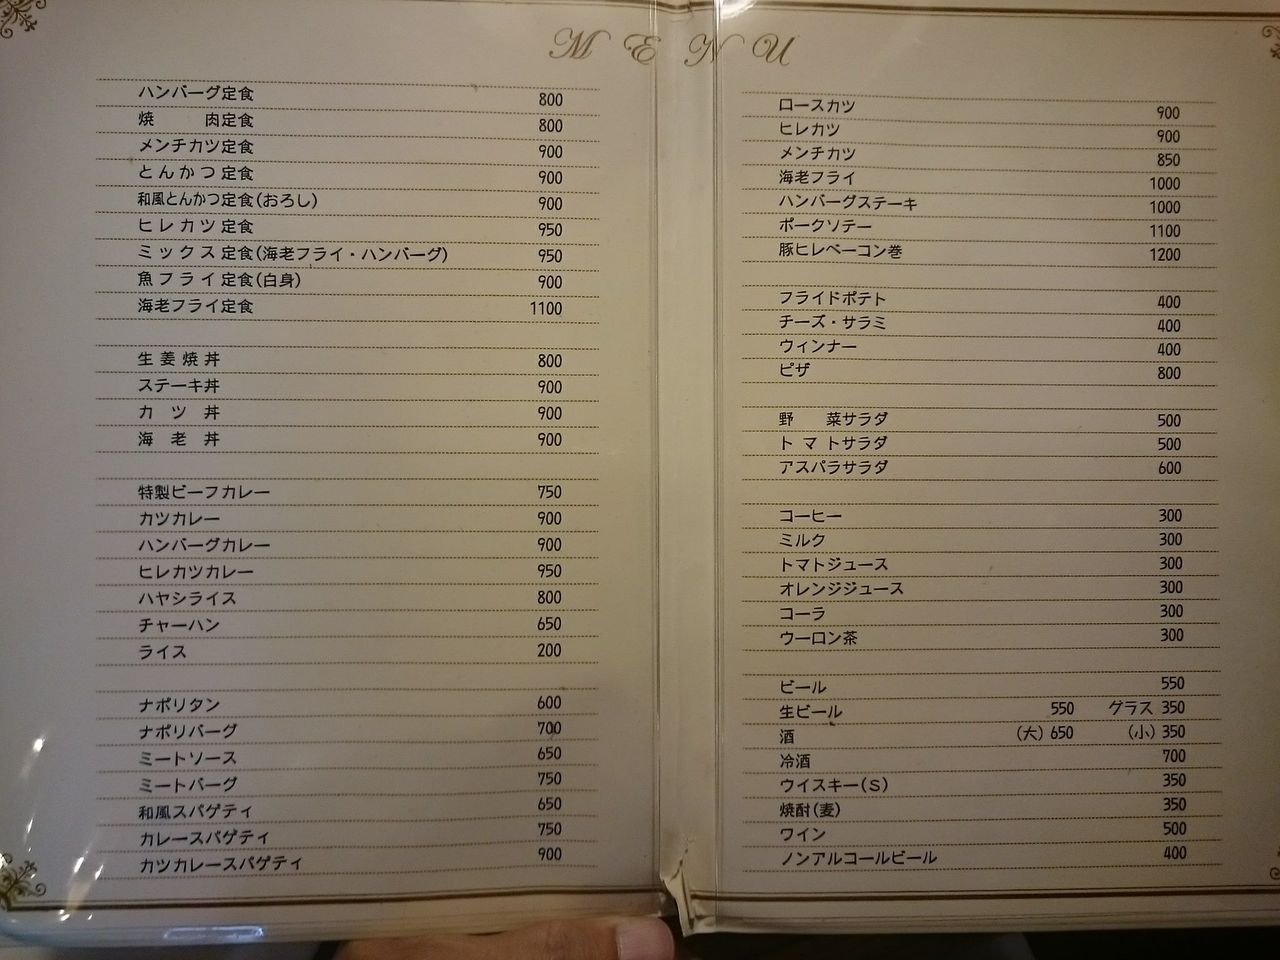 MENU
ハンバーグ定食 800
焼 肉定食 800
メンチカツ定食 900
とんかつ定食 900
和風とんかつ定食(おろし) 900
ヒレカツ定食 950
ミックス定食(海老フライ・ハンバーグ) 950
魚フライ定食(白身) 900
海老フライ定食 1100
生姜焼丼 800
ステーキ丼 900
カツ丼 900
海老丼 900
特製ビーフカレー 750
カツカレー 900
ハンバーグカレー 900
ヒレカツカレー 950
ハヤシライス 800
チャーハン 650
ライス 200
ナポリタン 600
ナポリバーグ 700
ミートソース 650
ミートバーグ 750
和風スパゲティ 650
カレースパゲティ 750
カツカレースパゲティ 900
ロースカツ 900
ヒレカツ 900
メンチカツ 850
海老フライ 1000
ハンバーグステーキ 1000
ポークソテー 1100
豚ヒレベーコン巻 1200
フライドポテト 400
チーズ・サラミ 400
ウィンナー 400
ピザ 800
野 菜サラダ 500
トマトサラダ 500
アスパラサラダ 600
コーヒー 300
ミルク 300
トマトジュース 300
オレンジジュース 300
コーラ 300
ウーロン茶 300
ビール 550
生ビール 550 グラス 350
酒 (大) 650 (小) 350
冷酒 700
ウイスキー(S) 350
焼酎(麦) 350
ワイン 500
ノンアルコールビール 400